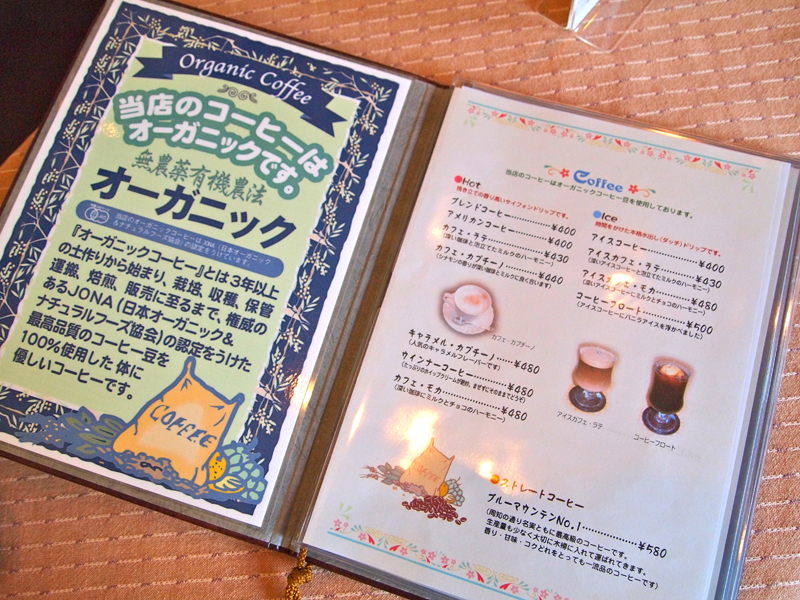 Organic Coffee
当店のコーヒーは
オーガニックです。
無農薬有機農法
オーガニック
当店のコーヒーは JONA (日本オーガニック
&ナチュラルフーズ協会) の認定をうけています。
『オーガニックコーヒー』とは3年以上
の土作りから始まり、栽培、収穫、保管
運搬、焙煎、販売に至るまで、権威の
あるJONA (日本オーガニック&
ナチュラルフーズ協会)の認定をうけた
最高品質のコーヒー豆を
100%使用した 体に
優しいコーヒーです。
COFFEE
Coffee
当店のコーヒーはオーガニックコーヒー豆を使用しております。
Hot
挽き立ての香り高いサイフォンドリップです。
ブレンドコーヒー ¥400
アメリカンコーヒー ¥400
カフェ・ラテ ¥430
(深い珈琲と泡立てたミルクのハーモニー)
カフェ・カプチーノ ¥400
(シナモンの香りが深い珈琲とミルクに良く合います)
カフェ・カプチーノ
キャラメル・カプチーノ ¥480
(人気のキャラメルフレーバーです)
ウインナーコーヒー ¥480
(たっぷりのホイップクリームが絶妙、まぜずにそのままでどうぞ)
カフェ・モカ ¥480
(深い珈琲にミルクとチョコのハーモニー)
Ice
時間をかけた本格水出し(ダッチ)ドリップです。
アイスコーヒー ¥400
アイスカフェ・ラテ ¥430
(深いアイスコーヒーと泡立てたミルクのハーモニー)
アイスカフェ・モカ ¥480
(深いアイスコーヒーにミルクとチョコのハーモニー)
コーヒーフロート ¥500
(アイスコーヒーにバニラアイスを浮かべました)
アイスカフェ・ラテ
コーヒーフロート
COFFEE
ストレートコーヒー
ブルーマウンテンNo.1 ¥580
(周知の通り名実ともに最高級のコーヒーです。
生産量も少なく大切に木樽に入れて運ばれてきます。
香り・甘味・コクどれをとっても一流品のコーヒーです)